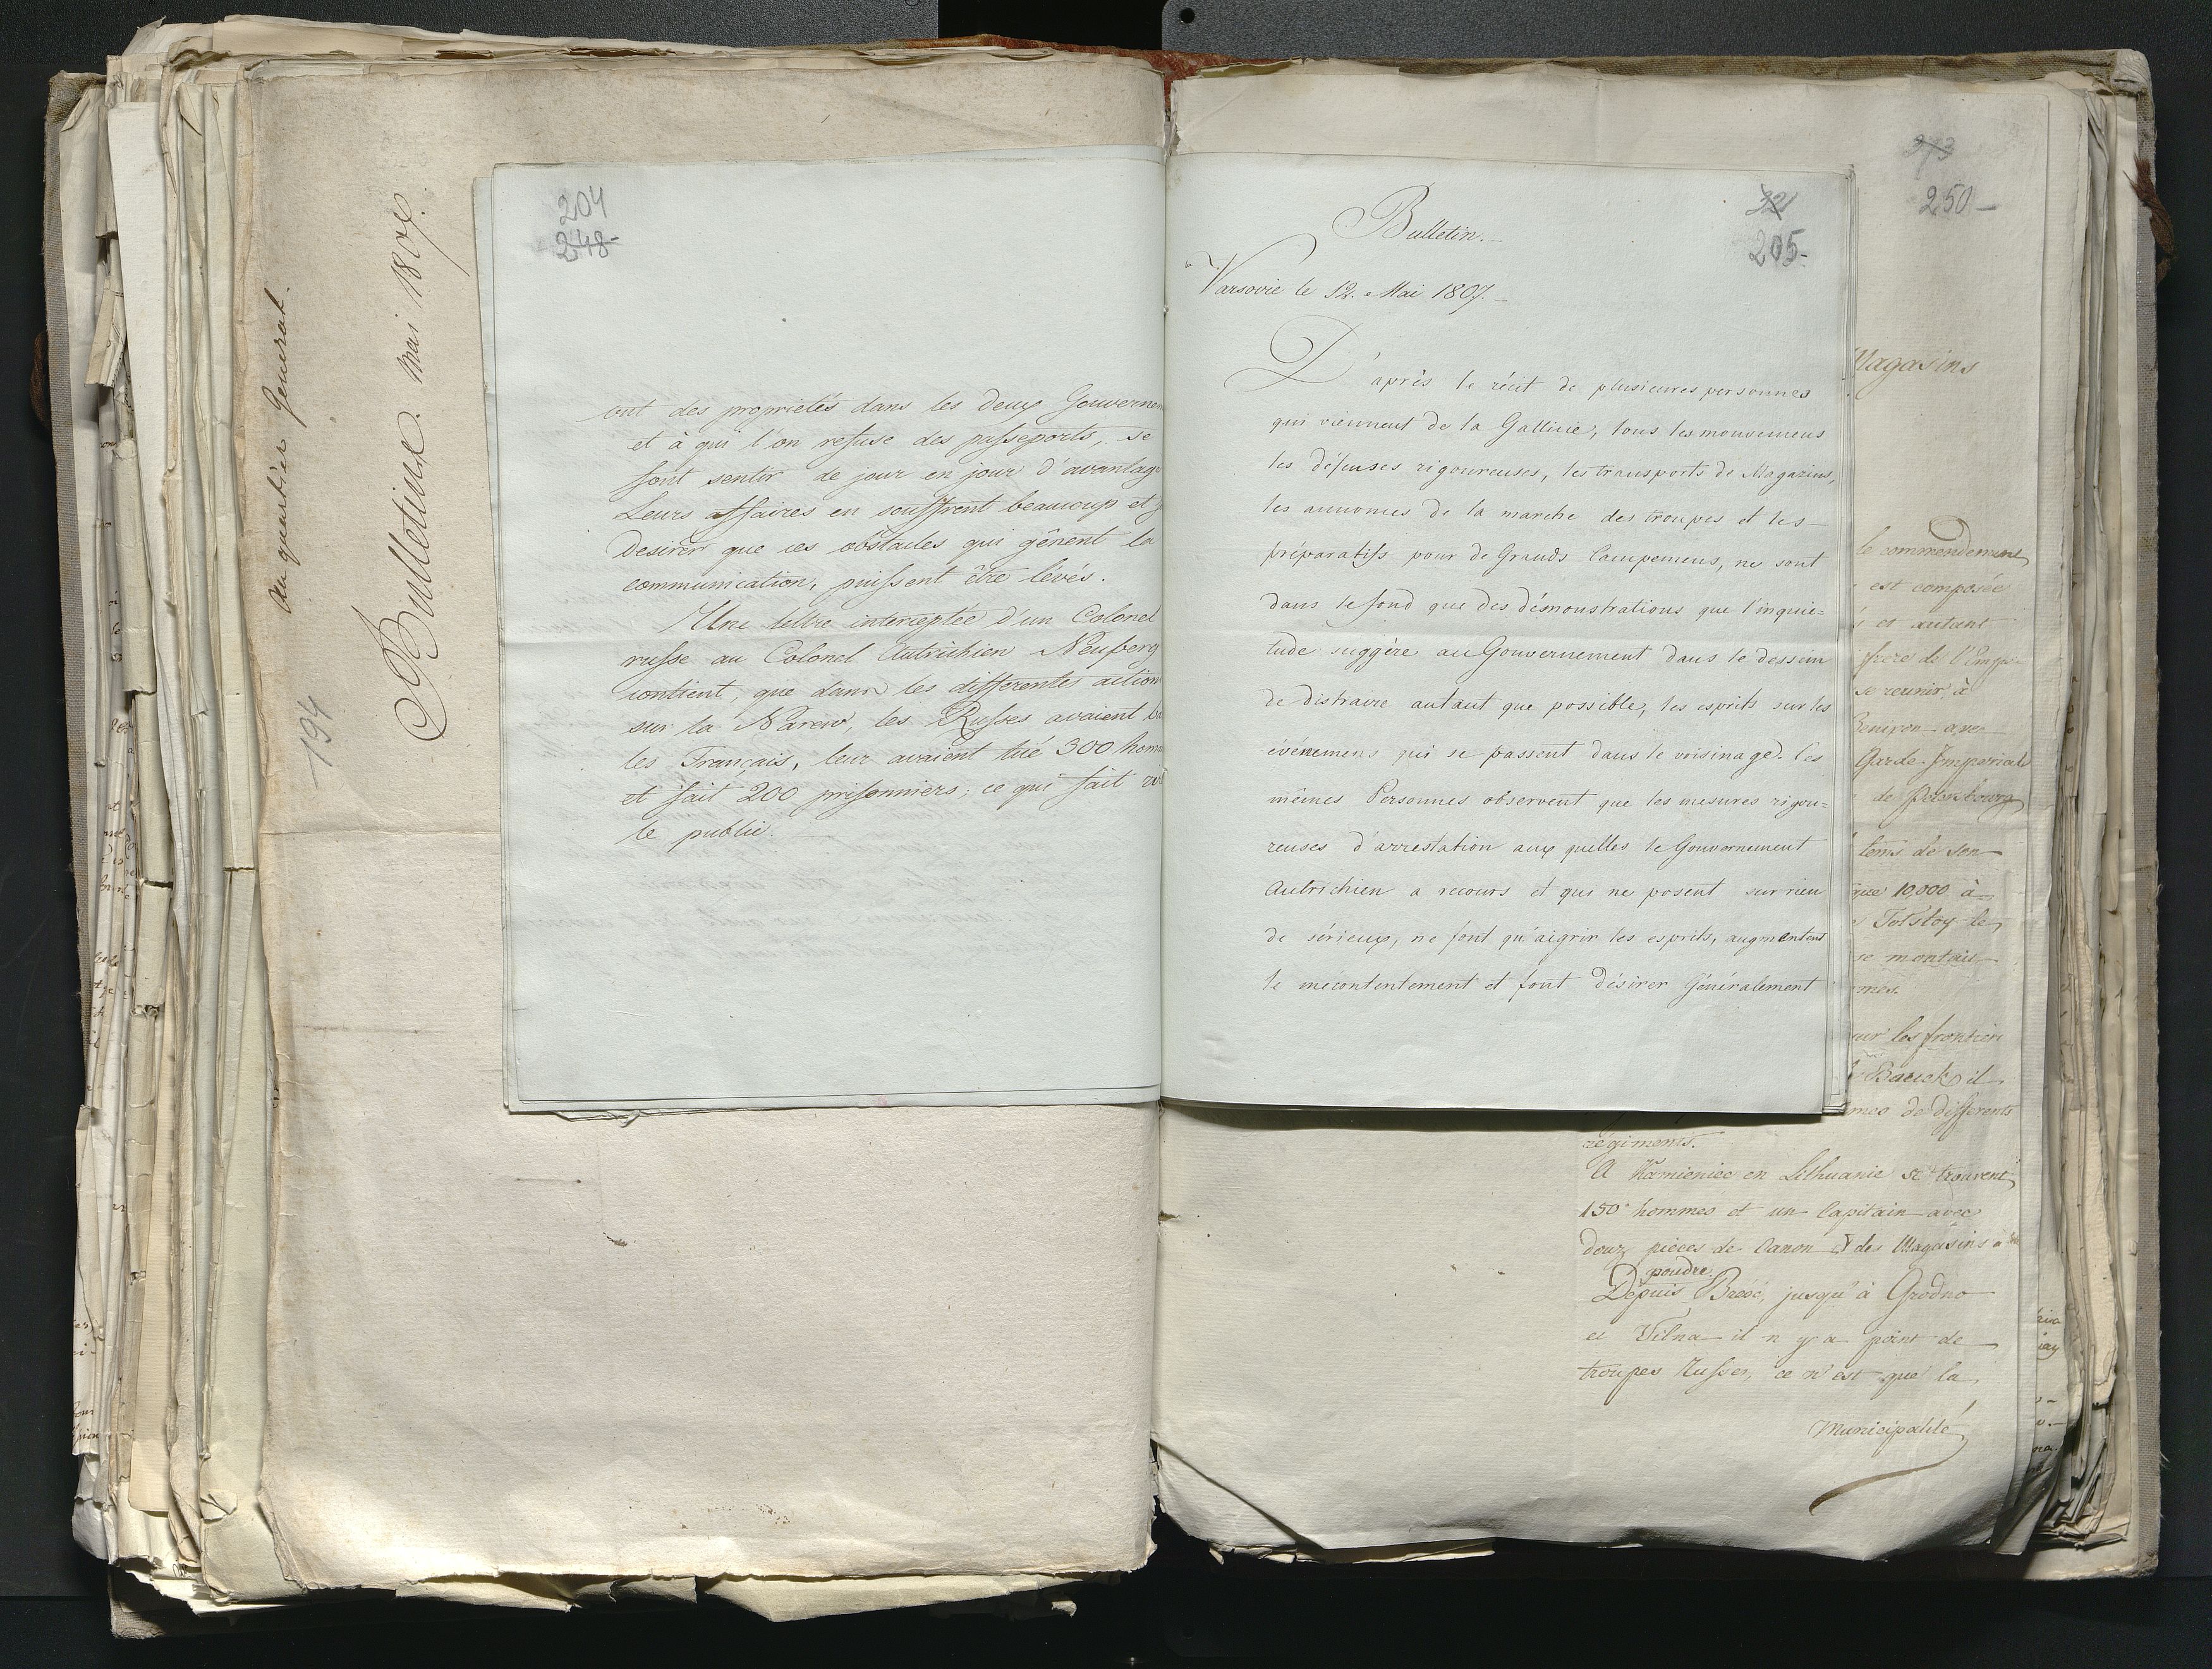 au quartier General.
Bulletins. mai 1807.
194
204
248-
ont des proprietés dans les deux Gouvernem
et à qui l'on refuse des passeports, se
font sentir de jour en jour d'avantage
Leurs affaires en souffrent beaucoup et
desirer que ces obstacles qui gênent la
communication, puissent être lévés.
Une lettre interceptée d'un Colonel
russe au Colonel Autrichien Neuperg
contient, que dans les differentes action
sur la Narew, les Russes avaient
les Français, leur avaient tué 300 hom
et fait 200 prisonniers; ce qui fait
le public.
321
205-
Bulletin.
Varsovie le 12. Mai 1807.
D'après le récit de plusieures personnes
qui viennent de la Gallicie, tous les mouvemens
les défenses rigoureuses, les transports de Magazins,
les annonces de la marche des troupes et les
préparatifs pour de Grands Campemens, ne sont
dans le fond que des démonstrations que l'inquie=
tude suggère au Gouvernement dans le dessein
de distraire autant que possible, les esprits sur les
événemens qui se passent dans le voisinage. Ces
mêmes Personnes observent que les mesures rigou=
reuses d'arrestation aux quelles le Gouvernement
Autrichien a recours et qui ne posent sur rien
de sérieux, ne font qu'aigrir les esprits, augmentent
le mécontentement et font désirer Généralement
273
250-
Magasins
le commendement
est composée
et autant
frere de l'Empe
se reunir à
Benixon ave
Garde Imperial
de Petersbourg
tems de son
que 10,000 à
Tolstoy le
se montait
mes.
sur les frontieri
Bauck il
mes de differents
régiments.
A Kamieniec en Lithuanie se trouvent
150 hommes et un Capitain avec
douz pieces de Canon & des Magasins a
poudre.
Depuis Bresc, jusqu'à Grodno
et Vilna il n'y a point de
troupes Russes, ce n'est que la
Municipalité